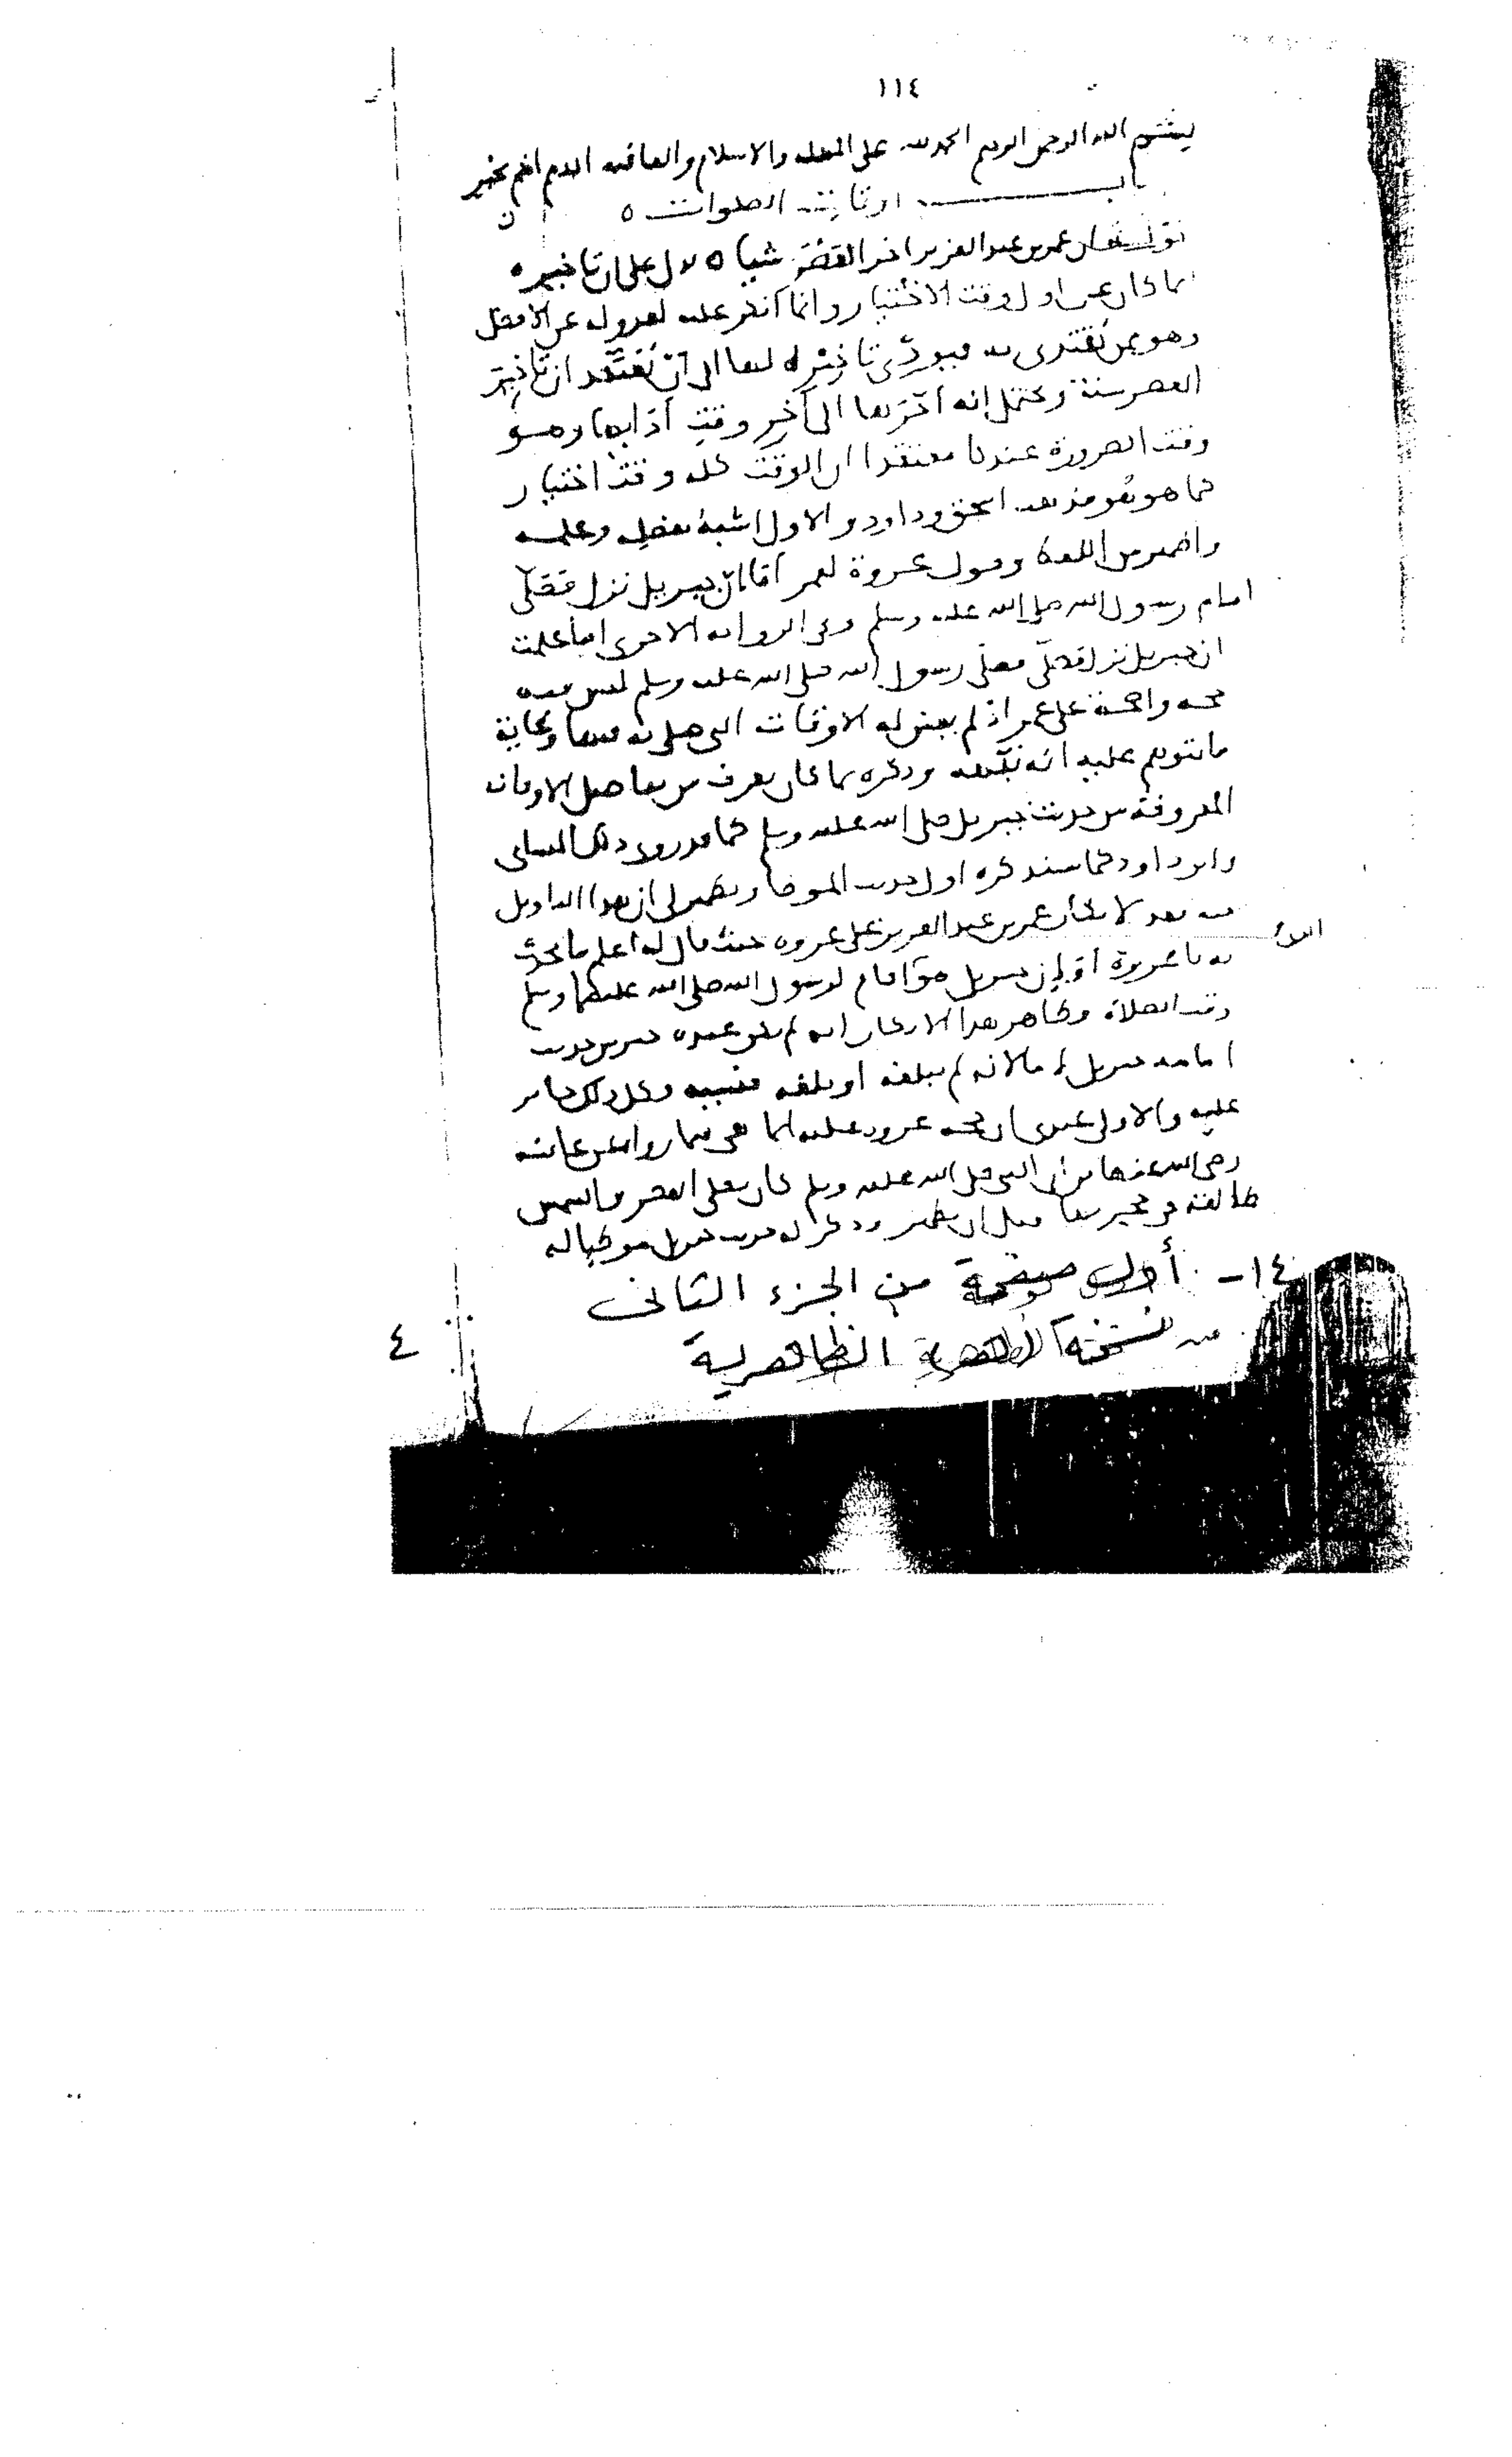 ١١٤
بسم الله الرحمن الرحيم الحمد لله على المعله والاسلام والعافيه اللهم اختم بخير
باب اوقات الصلوات ٥
قوله كان عمر بن عبد العزيز اخر العصر شيا ٥ يدل على ان تاخيره
انما كان عن اول وقت الاختيار وانما انكر عليه لعدوله عن الافضل
وهو ممن يقتدى به فيودى تاخيره لها الى ان يعتقد ان تاخير
العصر سنة ويحتمل انه اخرها الى آخر وقت ادايها وهو
وقت الضرورة عندنا معتقدا ان الوقت كله وقت اختيار
كما هو مذهب اسحق وداود والاول اشبه بفضله وعلمه
واظهر من اللفظ وقول عروة لعمر اما ان جبريل نزل فصلى
امام رسول الله صلى الله عليه وسلم وفى الروايه الاخرى اما علمت
ان جبريل نزل فصلى فصلى رسول الله صلى الله عليه وسلم ليس فيه
حجه واضحة على عمر اذ لم يعين له الاوقات التى صلى به فيها وغاية
ما يتوهم عليه انه نبهه وذكره بما كان يعرف من تفاصيل الاوقات
المعروفة من حديث جبريل صلى الله عليه وسلم كما قد روى ذلك النسائى
وابو داود كما سنذكره اول حديث الموطا ويظهر لى ان هذا التاويل
فيه بعد لانكار عمر بن عبد العزيز على عروه حيث قال له اعلم ما تحدث
به يا عروة او ان جبريل هو اقام لرسول الله صلى الله عليهما وسلم
وقت الصلاة وظاهر هذا الانكار انه لم يكن عنده خبر من حديث
امامه جبريل اما لانه لم يبلغه او بلغه فنسيه وكل ذلك جايز
عليه والاولى عندى ان حجه عروه عليه انما هى فيما رواه عن عائشه
رضى الله عنها من ان النبى صلى الله عليه وسلم كان يصلى العصر والشمس
طالعة فى حجرتها قبل ان تظهر وذكر له حديث جبريل
١٤ - أول صفحة من الجزء الثانى
من نسخة الظاهرية
٤